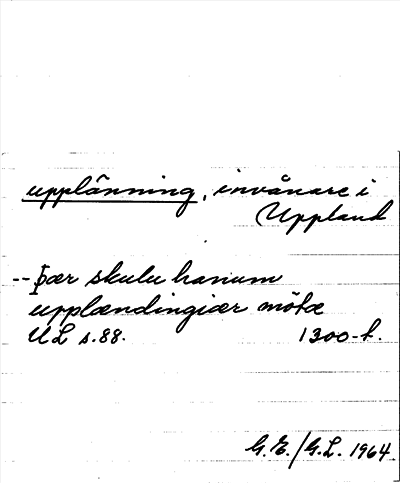 upplänning, invånare i
Uppland
-- þær skulu hanum
upplændingiær mötæ
UL s. 88. 1300-t.
G.E./G.L. 1964.